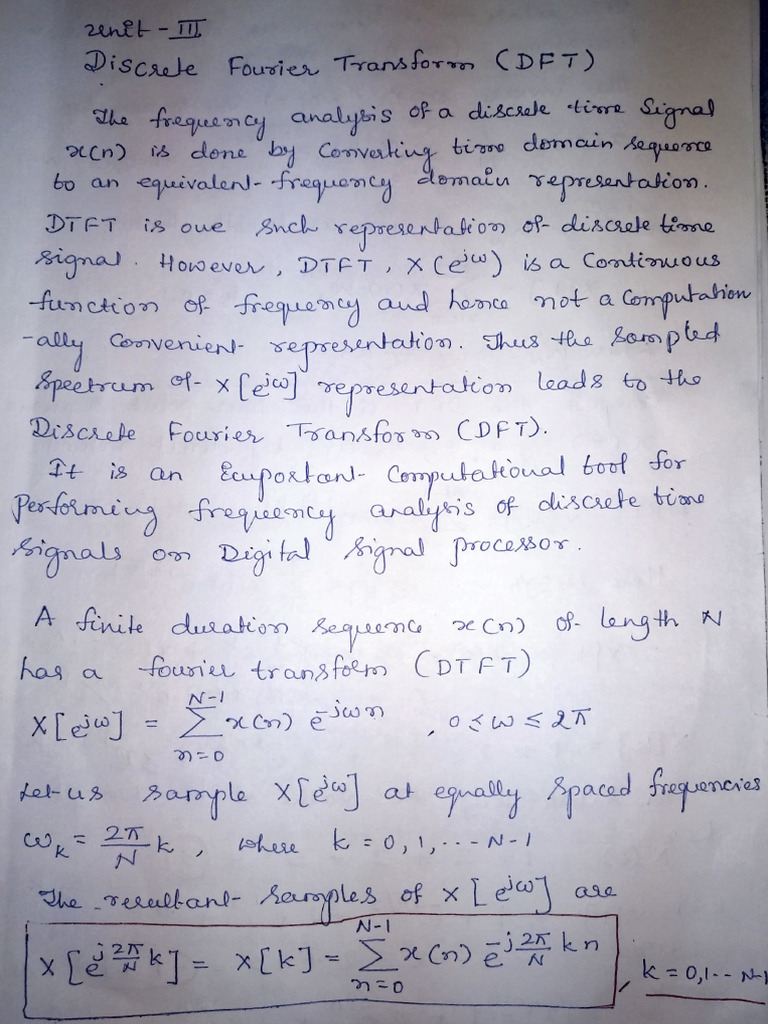 Unit - III
Discrete Fourier Transform (DFT)
The frequency analysis of a discrete time Signal
x(n) is done by Converting time domain sequence
to an equivalent frequency domain representation.
DTFT is one such representation of discrete time
signal. However, DTFT, X(e^{jω}) is a Continuous
function of frequency and hence not a Computation
-ally convenient representation. Thus the sampled
spectrum of X[e^{jω}] representation leads to the
Discrete Fourier Transform (DFT).
It is an Important Computational tool for
Performing frequency analysis of discrete time
signals on Digital signal processor.
A finite duration sequence x(n) of length N
has a fourier transform (DTFT)
X[e^{jω}] = ∑_{n=0}^{N-1} x(n) e^{-jωn} , 0 ≤ ω ≤ 2π
Let us sample X[e^{jω}] at equally spaced frequencies
ω_k = \frac{2π}{N} k , where k = 0, 1, --- N-1
The resultant samples of X[e^{jω}] are
X[e^{j\frac{2π}{N}k}] = X[k] = ∑_{n=0}^{N-1} x(n) e^{-j\frac{2π}{N}kn} , k = 0,1-- N-1